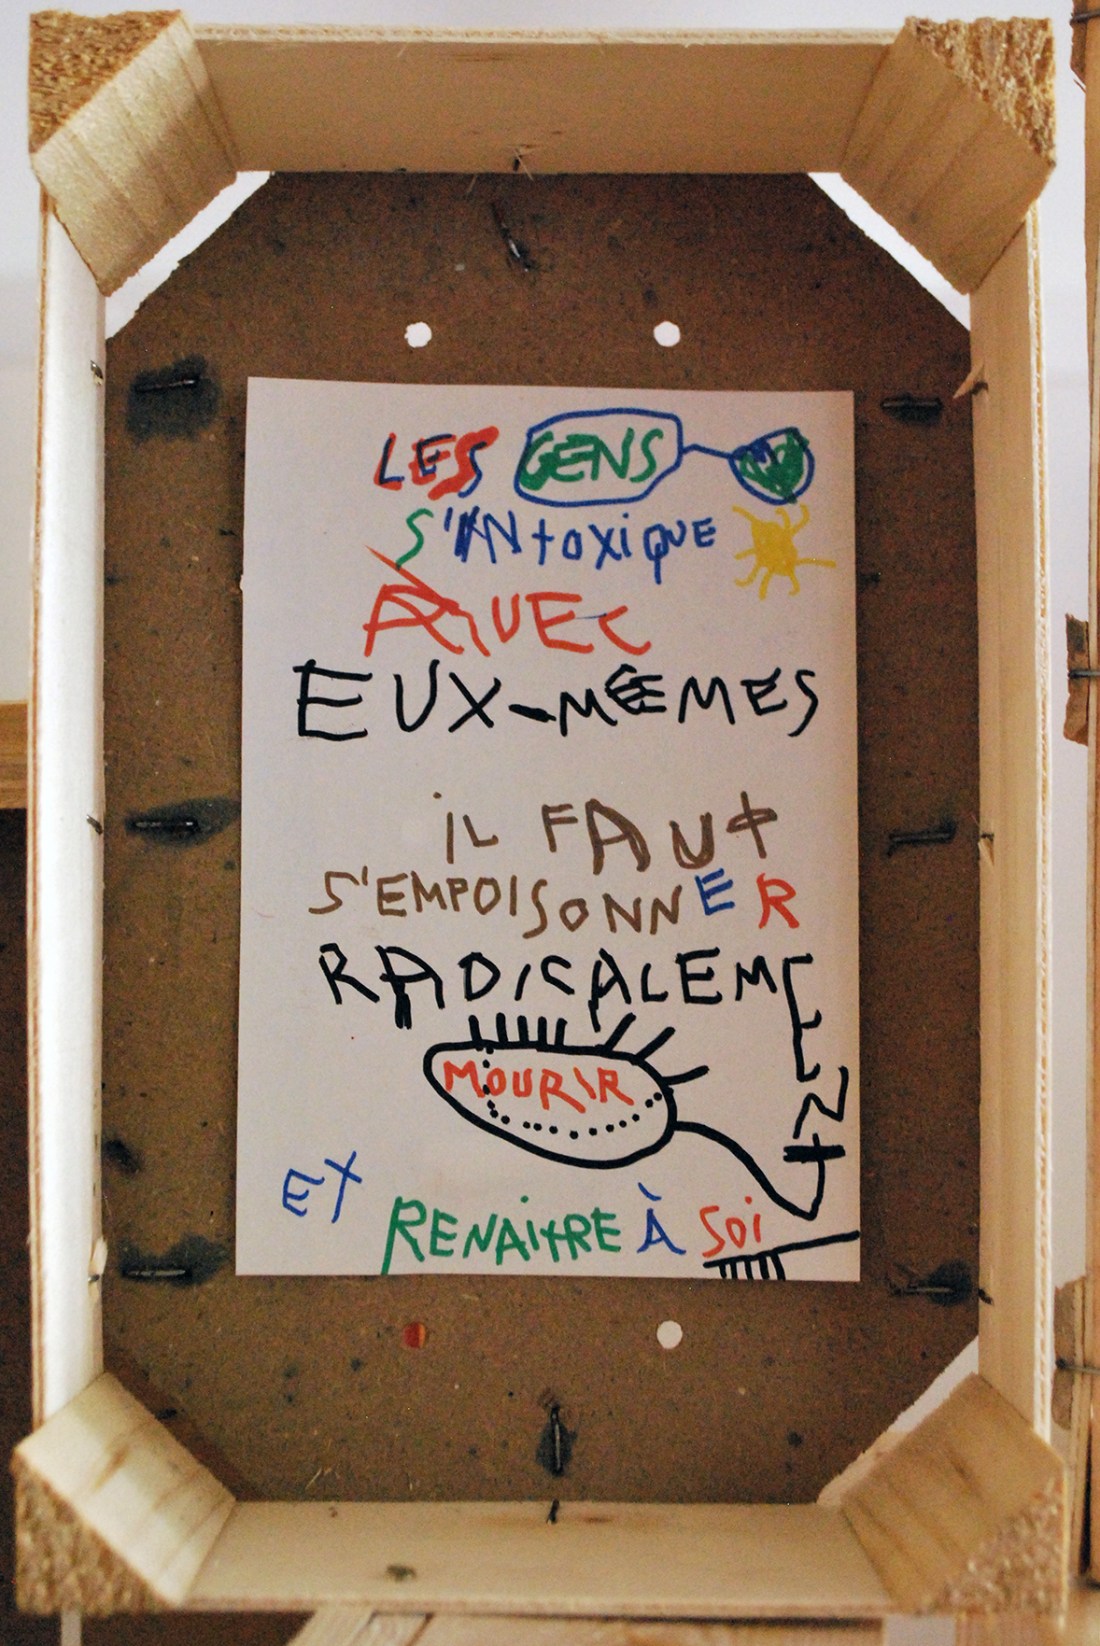 LES GENS
S'INtOXiQUE
AVEC
EUX-MÊMES
iL FAUt
S'EMPOISONNER
RADICALEMENt
MOURIR
Et
RENAitRE À SOi